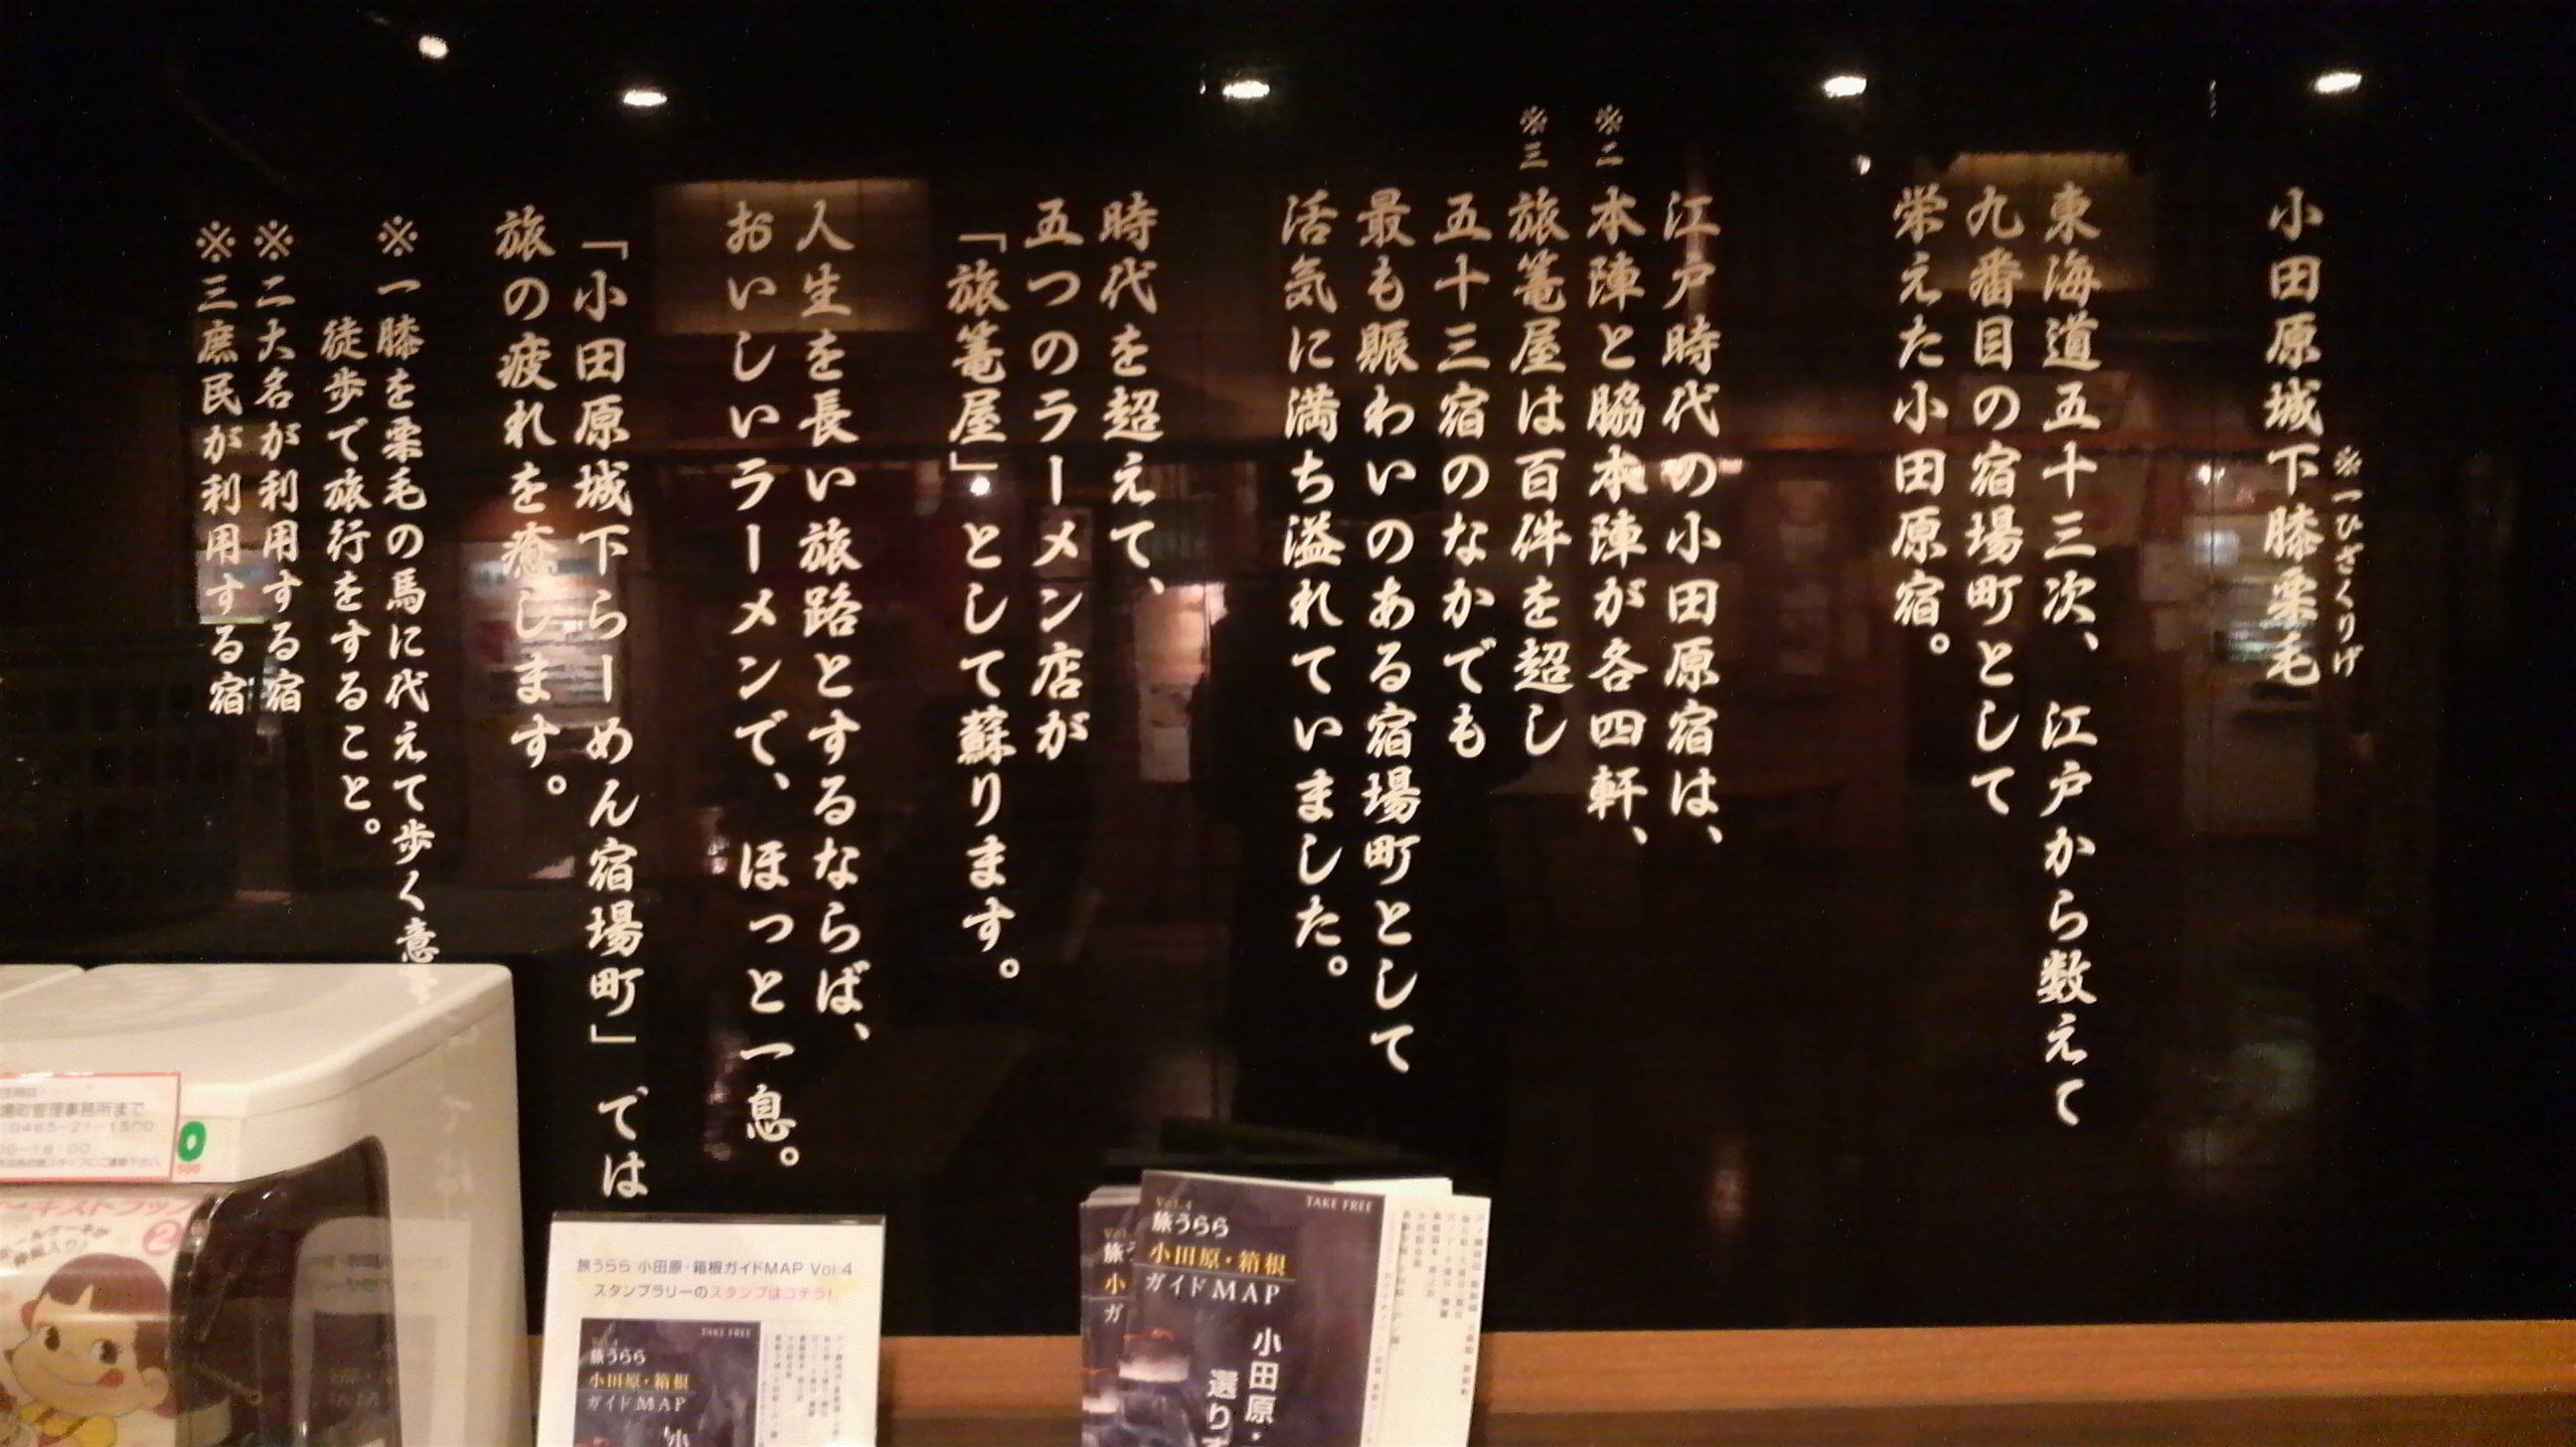 小田原城下膝栗毛
※一ひざくりげ
東海道五十三次、江戸から数えて
九番目の宿場町として
栄えた小田原宿。
江戸時代の小田原宿は、
※二本陣と脇本陣が各四軒、
※三旅篭屋は百件を超し
五十三宿のなかでも
最も賑わいのある宿場町として
活気に満ち溢れていました。
時代を超えて、
五つのラーメン店が
「旅篭屋」として蘇ります。
人生を長い旅路とするならば、
おいしいラーメンで、ほっと一息。
「小田原城下らーめん宿場町」では
旅の疲れを癒します。
※一膝を栗毛の馬に代えて歩く意
徒歩で旅行をすること。
※二大名が利用する宿
※三庶民が利用する宿
場町管理事務所まで
0465-21-1500
00~18:00
500
2
旅うらら 小田原・箱根ガイドMAP Vol.4
スタンプラリーのスタンプはコチラ!
Vol.4
TAKE FREE
旅うらら
小田原・箱根
ガイドMAP
小
Vol.4
TAKE FREE
旅うらら
小田原・箱根
ガイドMAP
小田原・
選り
旅
小
ガ